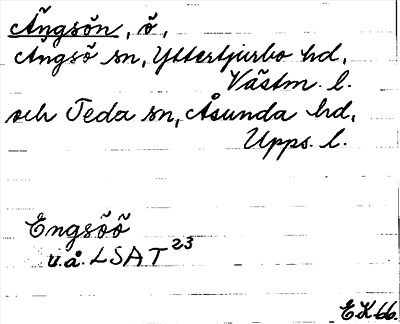 Ängsön, ö,
Ängsö sn, Yttertjurbo hd,
Västm. l.
och Teda sn, Åsunda hd,
Upps. l.
Engsöö
u.å. LSAT 23
EK 66.